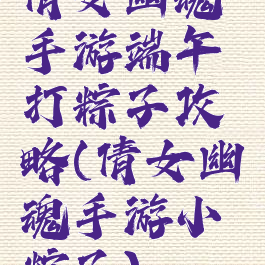 倩女幽魂
手游端午
打粽子攻
略(倩女幽
魂手游小
粽子)